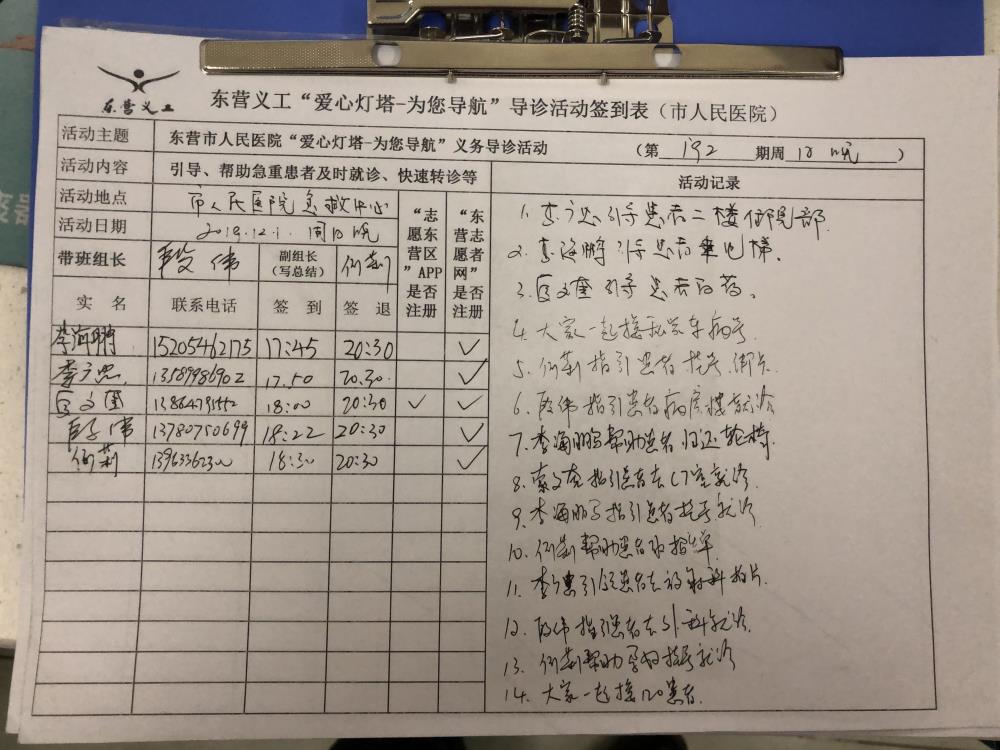 东营义工
东营义工“爱心灯塔-为您导航”导诊活动签到表（市人民医院）
活动主题 东营市人民医院“爱心灯塔-为您导航”义务导诊活动 （第 192 期周 日晚 ）
活动内容 引导、帮助急重患者及时就诊、快速转诊等 活动记录
活动地点 市人民医院急救中心
活动日期 2019.12.1. 周日晚
“志愿东营区”APP是否注册
“东营志愿者网”是否注册
带班组长 段伟 副组长（写总结） 何莉
实 名 联系电话 签 到 签 退
李海鹏 15205462175 17:45 20:30 ✓
李广忠 13589986902 17.50 20.30. ✓
18:00 20:30 ✓ ✓
段伟 13780750699 18:22 20:30 ✓
何莉 18:30 20:30 ✓
1. 李广忠引导患者二楼住院部.
2. 李海鹏引导患者乘电梯.
3. 引导患者取药。
4. 大家一起接私家车病号
5. 何莉指引患者挂号.
6. 段伟指引患者病房楼就诊
7. 李海鹏帮助患者归还轮椅
8. 指引患者去CT室就诊.
9. 李海鹏指引患者挂号就诊
10. 何莉帮助患者
11. 李广忠引领患者去放射科拍片.
12. 段伟指引患者去外科就诊.
13. 何莉帮助孕妇挂号就诊
14. 大家一起接120患者.